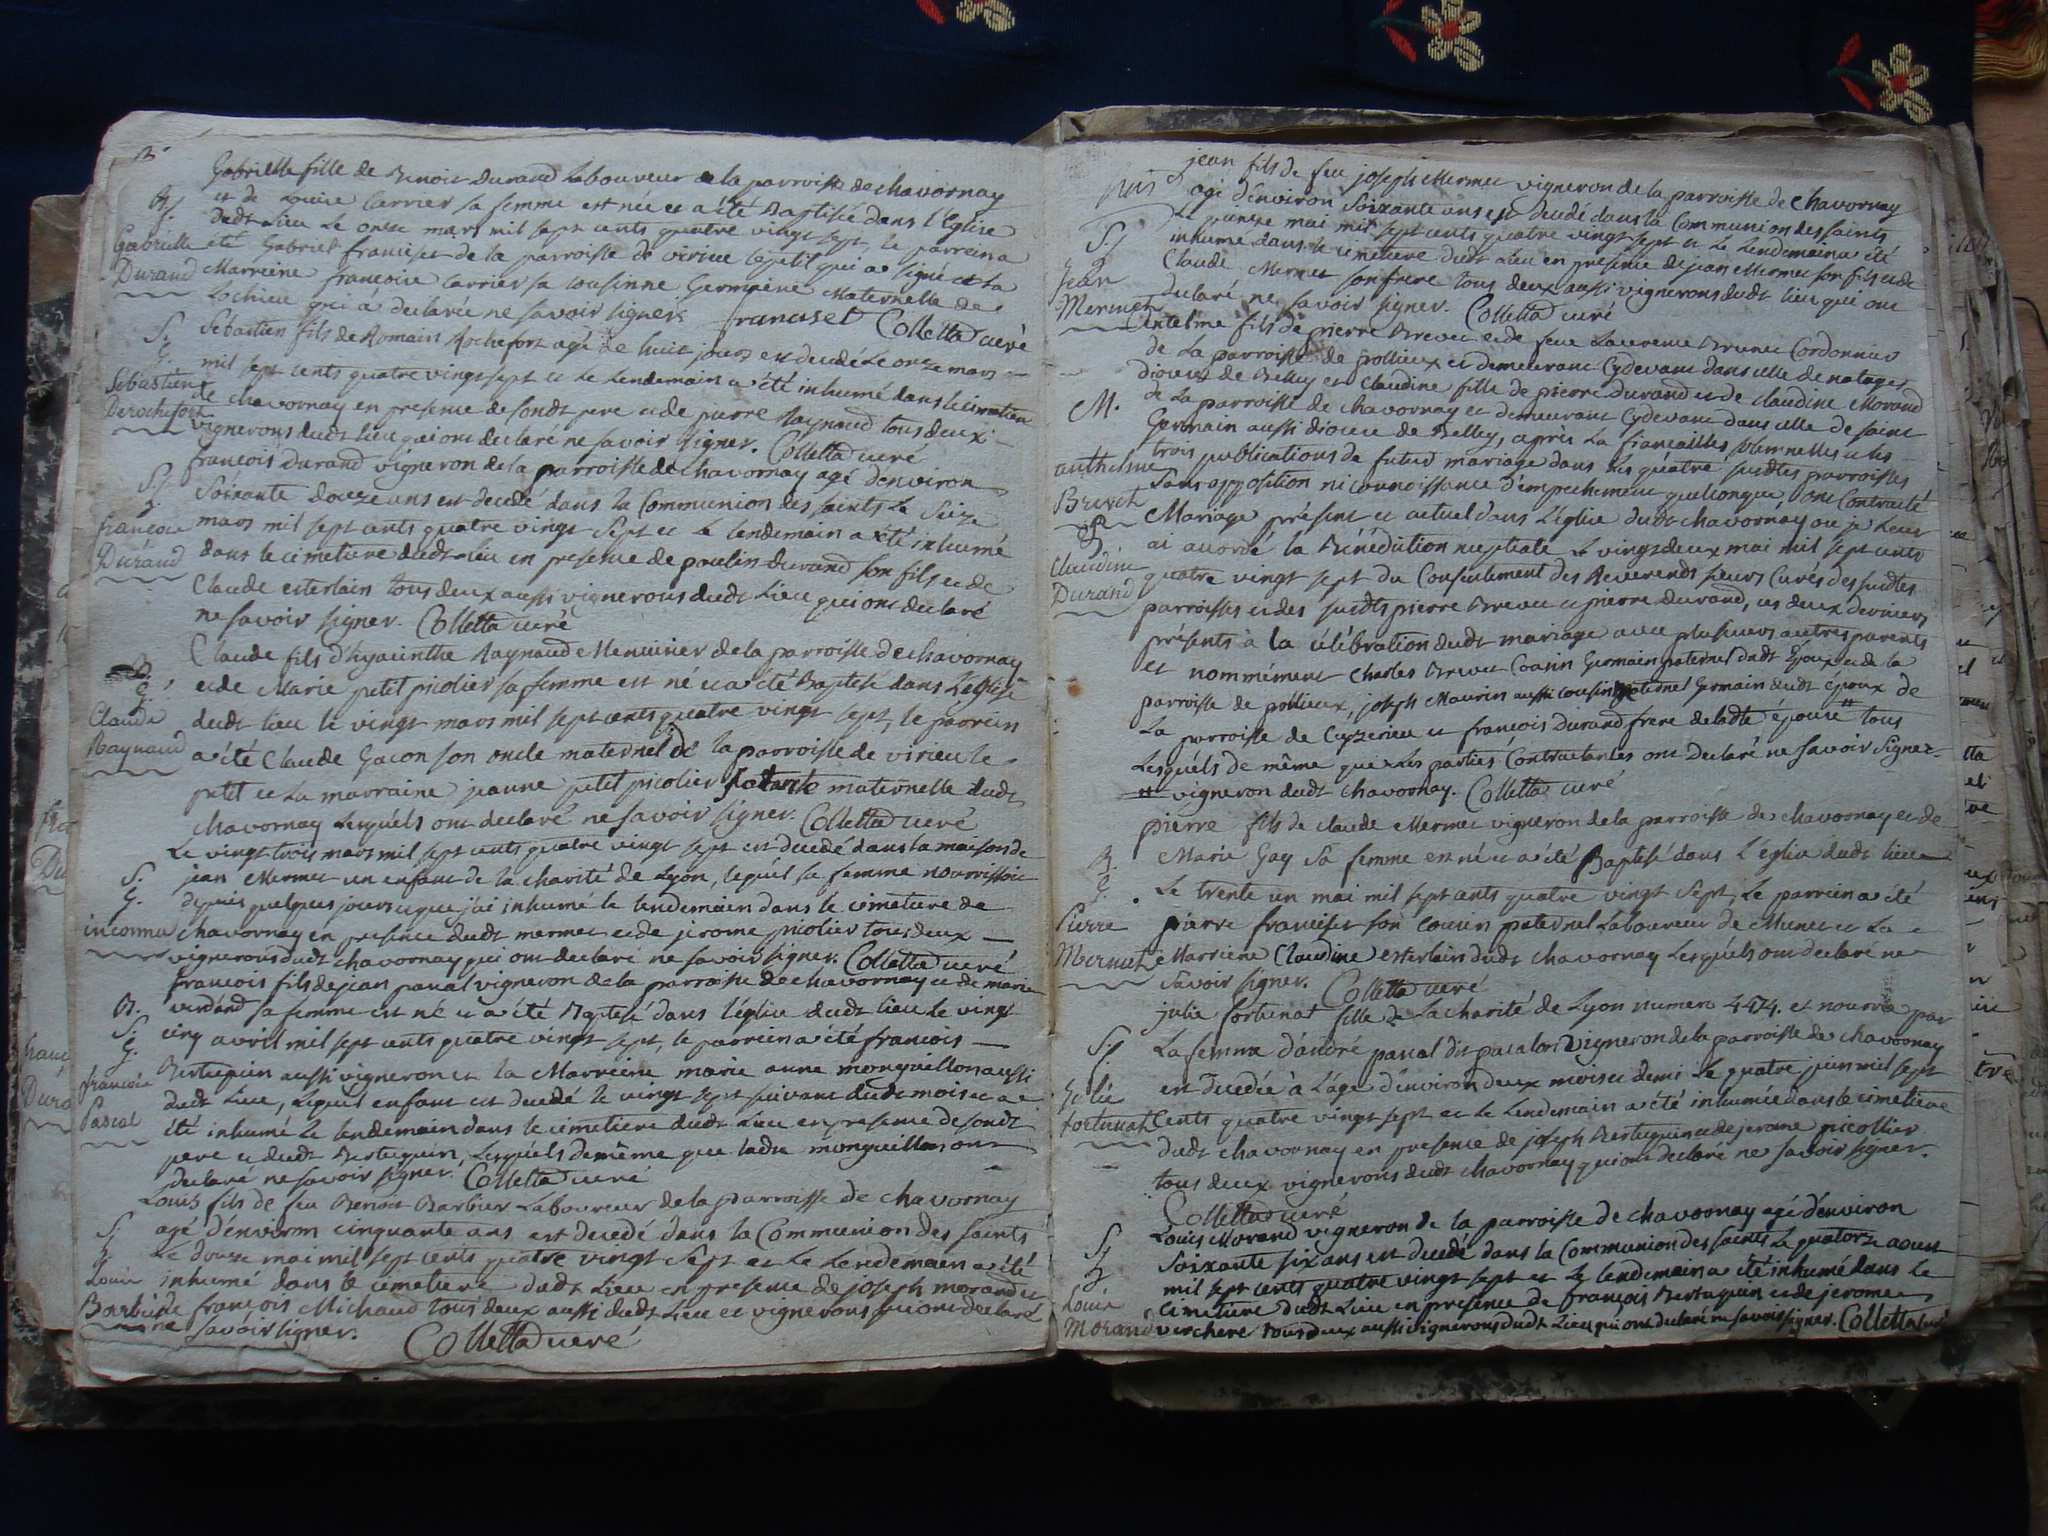 Gabrielle fille de Benoit Durand Laboureur de la parroisse de chavornay
et de Louise Carrier sa femme est née et a été Baptisée dans l'Eglise
B. G. Gabrielle Durand
dudt Lieu Le onze mars mil sept cents quatre vingt sept, le parrein a
été Gabriel franciset de la parroisse de virieu le petit qui a signé et la
Marreine francoise carrier sa cousinne Germaine Maternelle de
Lochieu qui a declarée ne savoir signer. franciset Colletta curé
S. G. Sebastien Derochefort
Sébastien fils de Romain Rochefort agé de huit jours est decedé Le onze mars
mil sept cents quatre vingt sept et le lendemain a été inhumé dans le cimetiere
de chavornay en presence de sondt pere et de pierre Raynaud tous deux
vignerons dudt lieu qui ont declaré ne savoir signer. Colletta curé
S. G. francois Durand
francois Durand vigneron de la parroisse de Chavornay agé d'environ
soixante douze ans est decedé dans la Communion des saints Le seize
mars mil sept cents quatre vingt sept et Le lendemain a été inhumé
dans le cimetiere dudt Lieu en presence de Durand son fils et de
Claude esterlain tous deux aussi vignerons dudt Lieu qui ont declaré
ne savoir signer. Colletta curé
B. G. Claude Raynaud
Claude fils d'hyacinthe Raynaud Menuisier de la parroisse de chavornay
et de Marie petit picolier sa femme est né et a été Baptisé dans l'Eglise
dudt lieu le vingt mars mil sept cents quatre vingt sept, le parrein
a été Claude Gacon son oncle maternel de la parroisse de virieu le
petit et La marraine jeanne petit picolier sa tante maternelle dudt
chavornay Lesquéls ont declaré ne savoir signer. Colletta curé
S. G. inconnu
Le vingt trois mars mil sept cents quatre vingt sept est decedé dans la maison de
jean Mermet un enfant de la charité de Lyon, lequél sa femme nourrissoit
depuis quelques jours et que j'ai inhumé le lendemain dans le cimetiere de
chavornay en presence dudt mermet et de jerome picolier tous deux
vignerons dudt chavornay qui ont declaré ne savoir signer. Colletta curé
B. S. G. francois Pascal
francois fils de jean pascal vigneron de la parroisse de chavornay et de marie
sa femme est né et a été Baptisé dans l'église dudt lieu Le vingt
cinq avril mil sept cents quatre vingt sept, le parrein a été francois
Bertuquin aussi vigneron et la Marreine marie anne monguillon aussi
dudt Lieu, Lequel enfant est decedé le vingt sept suivant dudt mois et a
été inhumé Le lendemain dans le cimetiere dudt Lieu en presence de sondt
pere et dudt Bertuquin, Lesquéls de même que ladte monguillon ont
declaré ne savoir signer. Colletta curé
S. G. Louis Barbier
Louis fils de feu Benoit Barbier Laboureur de la parroisse de chavornay
agé d'environ cinquante ans est decedé dans la Communion des saints
Le douze mai mil sept cents quatre vingt sept et Le Lendemain a été
inhumé dans le cimetiere dudt Lieu en presence de joseph morand et
de françois Michaud tous deux aussi dudt Lieu et vignerons qui ont declaré
ne savoir signer. Colletta curé
jean fils de feu joseph Mermet vigneron de la parroisse de chavornay
agé d'environ soixante ans est decedé dans la Communion des saints
S. G. Jean Mermet
Le quinze mai mil sept cents quatre vingt sept et Le Lendemain a été
inhumé dans le cimetiere dudt Lieu en presence de jean Mermet son fils et de
Claude Mermet son frere tous deux aussi vignerons dudt lieu qui ont
declaré ne savoir signer. Colletta curé
M. anthelme Brevet & Claudine Durand
Antelme fils de pierre Brevet et de feue Laurence Brunet Cordonnier
de La parroisse de pollieux et demeurant Cydevant dans celle de natages
diocese de Belley et Claudine fille de pierre Durand et de Claudine Morand
de La parroisse de chavornay et demeurant Cydevant dans celle de saint
Germain aussi diocese de Belley, après La fiancailles solemnelles et les
trois publications de futurs mariage dans Les quatre susdtes parroisses
sans opposition ni connoissance d'empechement quelconque, ont Contracté
Mariage présent et actuel dans l'église dudt chavornay ou je Leur
ai accordé la Bénédiction nuptiale Le vingt deux mai mil sept cents
quatre vingt sept du Consentement des Reverends sieurs Curés des susdtes
parroisses et des susdts pierre Brevet et pierre Durand, ces deux derniers
présents à la célébration dudt mariage avec plusieurs autres parents
et nommément Charles Brevet Cousin Germain paternel dudt Epoux et de la
parroisse de pollieux, joseph Maurin aussi cousin paternel Germain dudt époux de
La parroisse de Ceyzerieu et françois Durand frere de ladte épouse # tous
Lesquéls de même que Les parties Contractantes ont Declaré ne savoir Signer
# vigneron dudt Chavornay. Colletta curé
B. G. Pierre Mermet
pierre fils de claude Mermet vigneron de la parroisse de chavornay et de
Marie Gay sa femme est né et a été Baptisé dans L'église dudt lieu
Le trente un mai mil sept cents quatre vingt sept, Le parrein a été
pierre franciset son cousin paternel Laboureur de Munet et La
Marreine Claudine esterlain dudt chavornay Lesquéls ont declaré ne
savoir signer. Colletta curé
S. G. Julie fortunat
julie fortunat fille de La charité de Lyon numero 4474. et nourrie par
La femme d'andré pascal dit pacalon vigneron de la parroisse de chavornay
est decedée à L'age d'environ deux mois et demi Le quatre juin mil sept
Cents quatre vingt sept et Le Lendemain a été inhumée dans le cimetiere
dudt chavornay en presence de joseph Bertuquin et de jerome picollier
tous deux vignerons dudt chavornay qui ont declaré ne savoir signer.
Colletta curé
S. G. Louis Morand
Louis Morand vigneron de la parroisse de chavornay agé d'environ
soixante six ans est decedé dans la Communion des saints Le quatorze aoust
mil sept cents quatre vingt sept et Le lendemain a été inhumé dans Le
cimetiere dudt Lieu en presence de françois Bertuquin et de jerome
verchere tous deux aussi vignerons dudt Lieu qui ont declaré ne savoir signer. Colletta curé